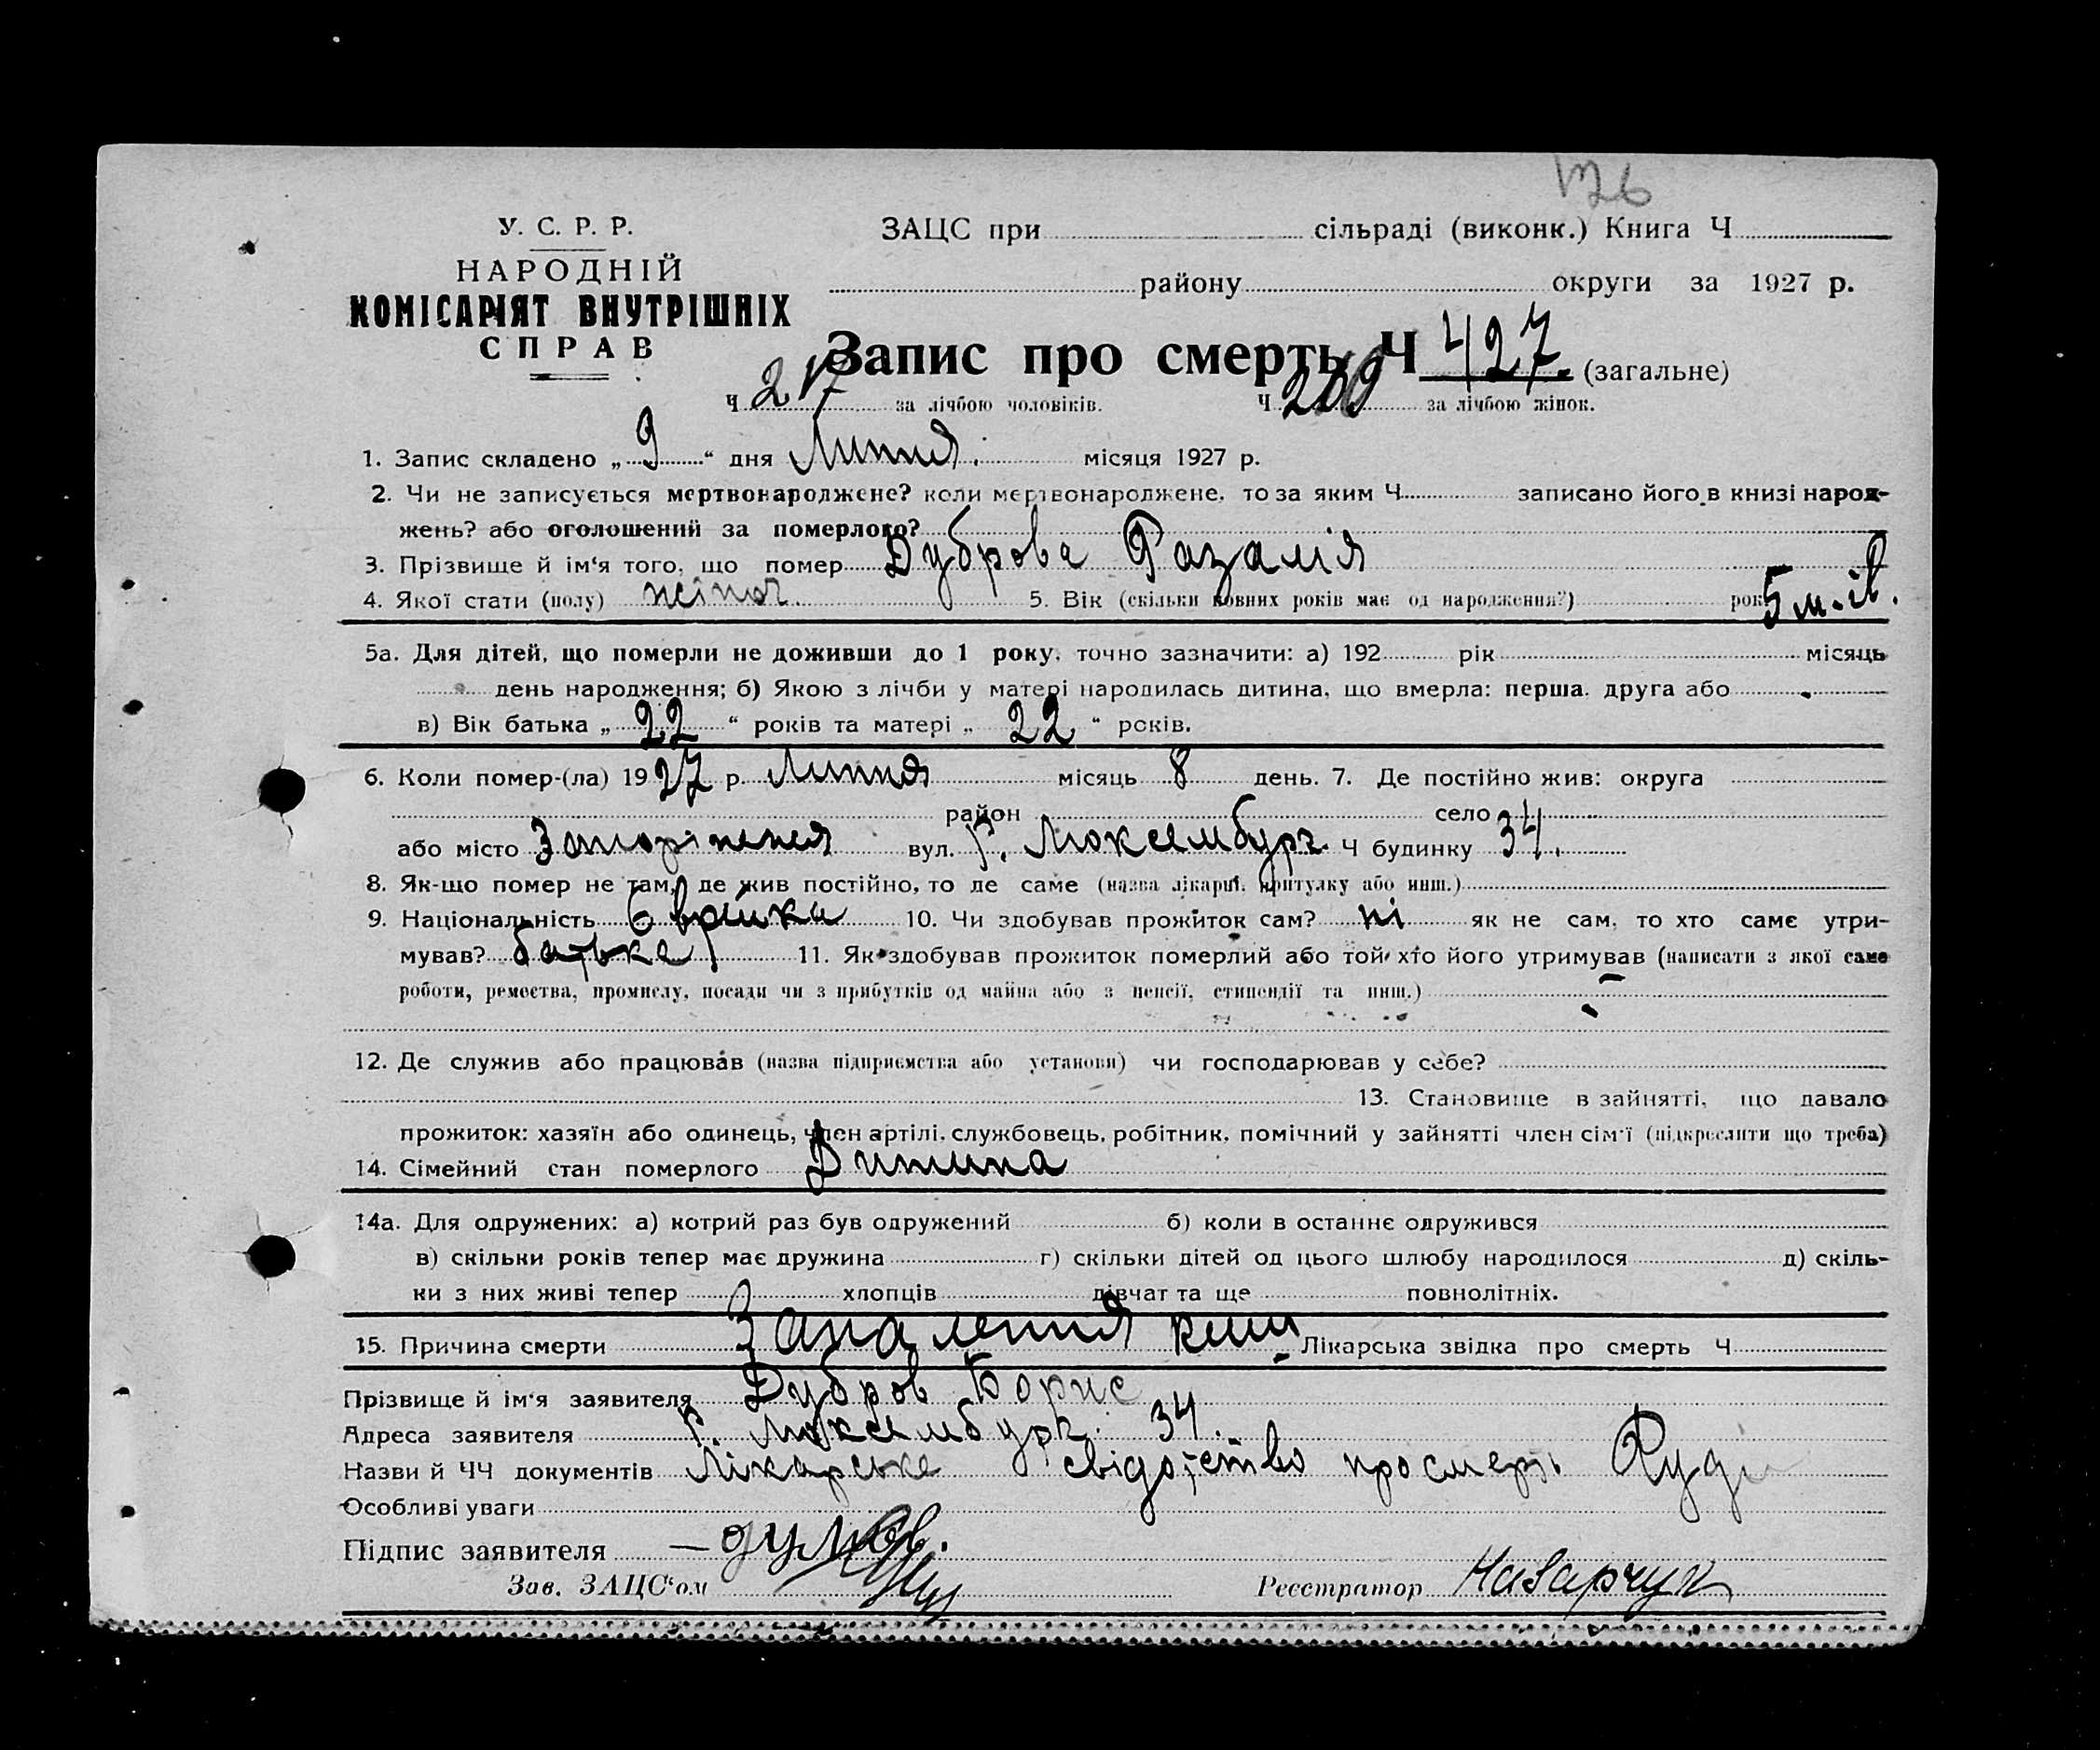 126
У. С. Р. Р.
НАРОДНІЙ
КОМІСАРІЯТ ВНУТРІШНІХ
СПРАВ
ЗАЦС при сільраді (виконк.) Книга Ч
району округи за 1927 р.
Запис про смерть Ч 427. (загальне)
Ч 217 за лічбою чоловіків. Ч за лічбою жінок.
1. Запис складено „ 9 “ дня Липня. місяця 1927 р.
2. Чи не записується мертвонароджене? коли мертвонароджене, то за яким Ч. записано його в книзі народ-
жень? або оголошений за померлого?
3. Прізвище й ім‘я того, що помер Дуброва Разалія
4. Якої стати (полу) жіноч. 5. Вік (скільки повних років має од народження?) рок 5 м-ів.
5а. Для дітей, що померли не доживши до 1 року, точно зазначити: а) 192 рік місяць
день народження; б) Якою з лічби у матері народилась дитина, що вмерла: перша, друга або
в) Вік батька „ 22 “ років та матері „ 22 “ років.
6. Коли помер-(ла) 1927 р. Липня місяць 8 день. 7. Де постійно жив: округа
район село
або місто Запоріжжя вул. Р. Люксембург. Ч будинку 34.
8. Як-що помер не там, де жив постійно, то де саме (назва лікарні, притулку або инш.)
9. Національність Єврейка 10. Чи здобував прожиток сам? ні як не сам, то хто саме утри-
мував? батьке 11. Як здобував прожиток померлий або той хто його утримував (написати з якої саме
роботи, ремества, промислу, посади чи з прибутків од майна або з пенсії, стипендії та инш.) -
12. Де служив або працював (назва підприємства або установи) чи господарював у себе?
13. Становище в зайнятті, що давало
прожиток: хазяїн або одинець, член артілі, службовець, робітник, помічний у зайнятті член сім‘ї (підкреслити що треба)
14. Сімейний стан померлого Дитина
14а. Для одружених: а) котрий раз був одружений б) коли в останнє одружився
в) скільки років тепер має дружина г) скільки дітей од цього шлюбу народилося д) скіль-
ки з них живі тепер хлопців дівчат та ще повнолітніх.
15. Причина смерти Запалення киш Лікарська звідка про смерть Ч
Прізвище й ім‘я заявителя Дубров Борис
Адреса заявителя Р. Люксембург. 34.
Назви й ЧЧ документів Лікарське свідотство про смерть
Особливі уваги
Підпис заявителя
Зав. ЗАЦС‘ом Реєстратор Назарчук